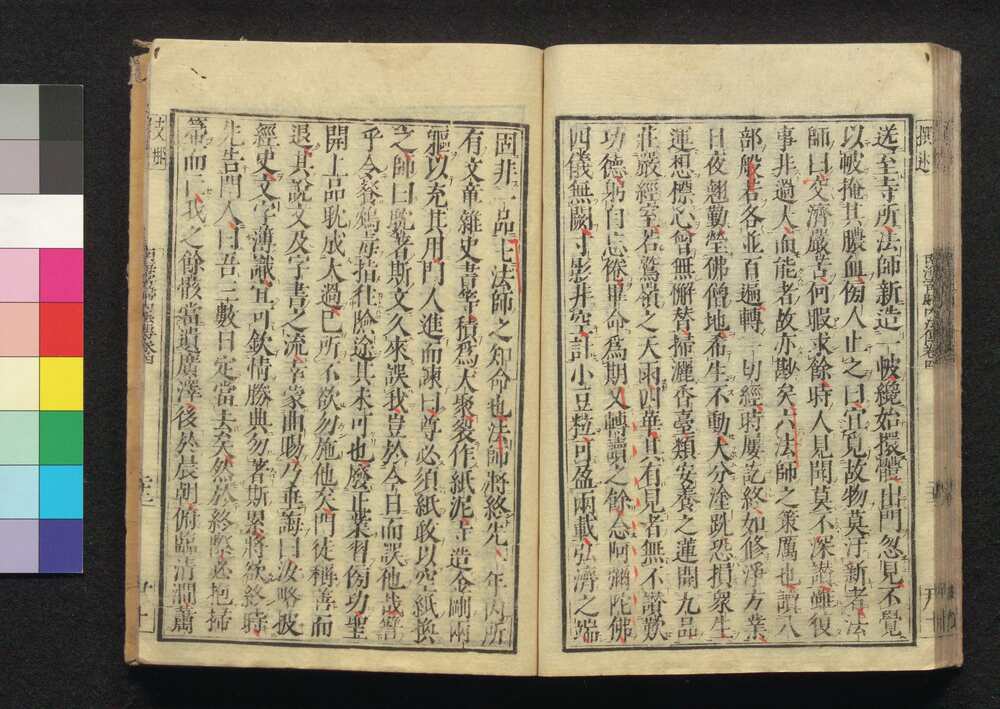 撰述
南海寄歸內法傳卷四
送至寺所法師新造一帔纔始擐體出門忽見不覺
以帔掩其膿血傍人止之曰宜覓故物莫汙新者法
師曰交濟嚴苦何暇求餘時人見聞莫不深讃雖復
事非過大而能者故亦尠矣六法師之策厲也讀八
部般若各並百遍轉一切經時屢訖終如修淨方業
日夜翹勤瑩佛僧地希生不動大分塗跣恐損衆生
運想標心曾無懈替掃灑香臺類安養之蓮開九品
莊嚴經室若鷲嶺之天雨四華其有見者無不讃歎
功德躬自忘倦畢命爲期又轉讀之餘念阿彌陀佛
四儀無闕寸影非空計小豆粒可盈兩載弘濟之端
固非一品七法師之知命也法師將終先一年内所
有文章雜史書等積爲大聚裂作紙泥寺造金剛兩
軀以充其用門人進而諫曰尊必須紙敢以空紙換
之師曰耽著斯文久來誤我豈於今日而誤他哉譬
乎令餐鴆毒指往險途其未可也廢正業習傍功聖
開上品耽成大過已所不欲勿施他矣門徒稱善而
退其說文及字書之流幸蒙曲賜乃垂誨曰汝略披
經史文字薄識宜可欽情勝典勿著斯累將欲終時
先告門人曰吾三數日定當去矣然於終際必抱掃
箒而亡我之餘骸當遺廣澤後於晨朝俯臨清澗蕭